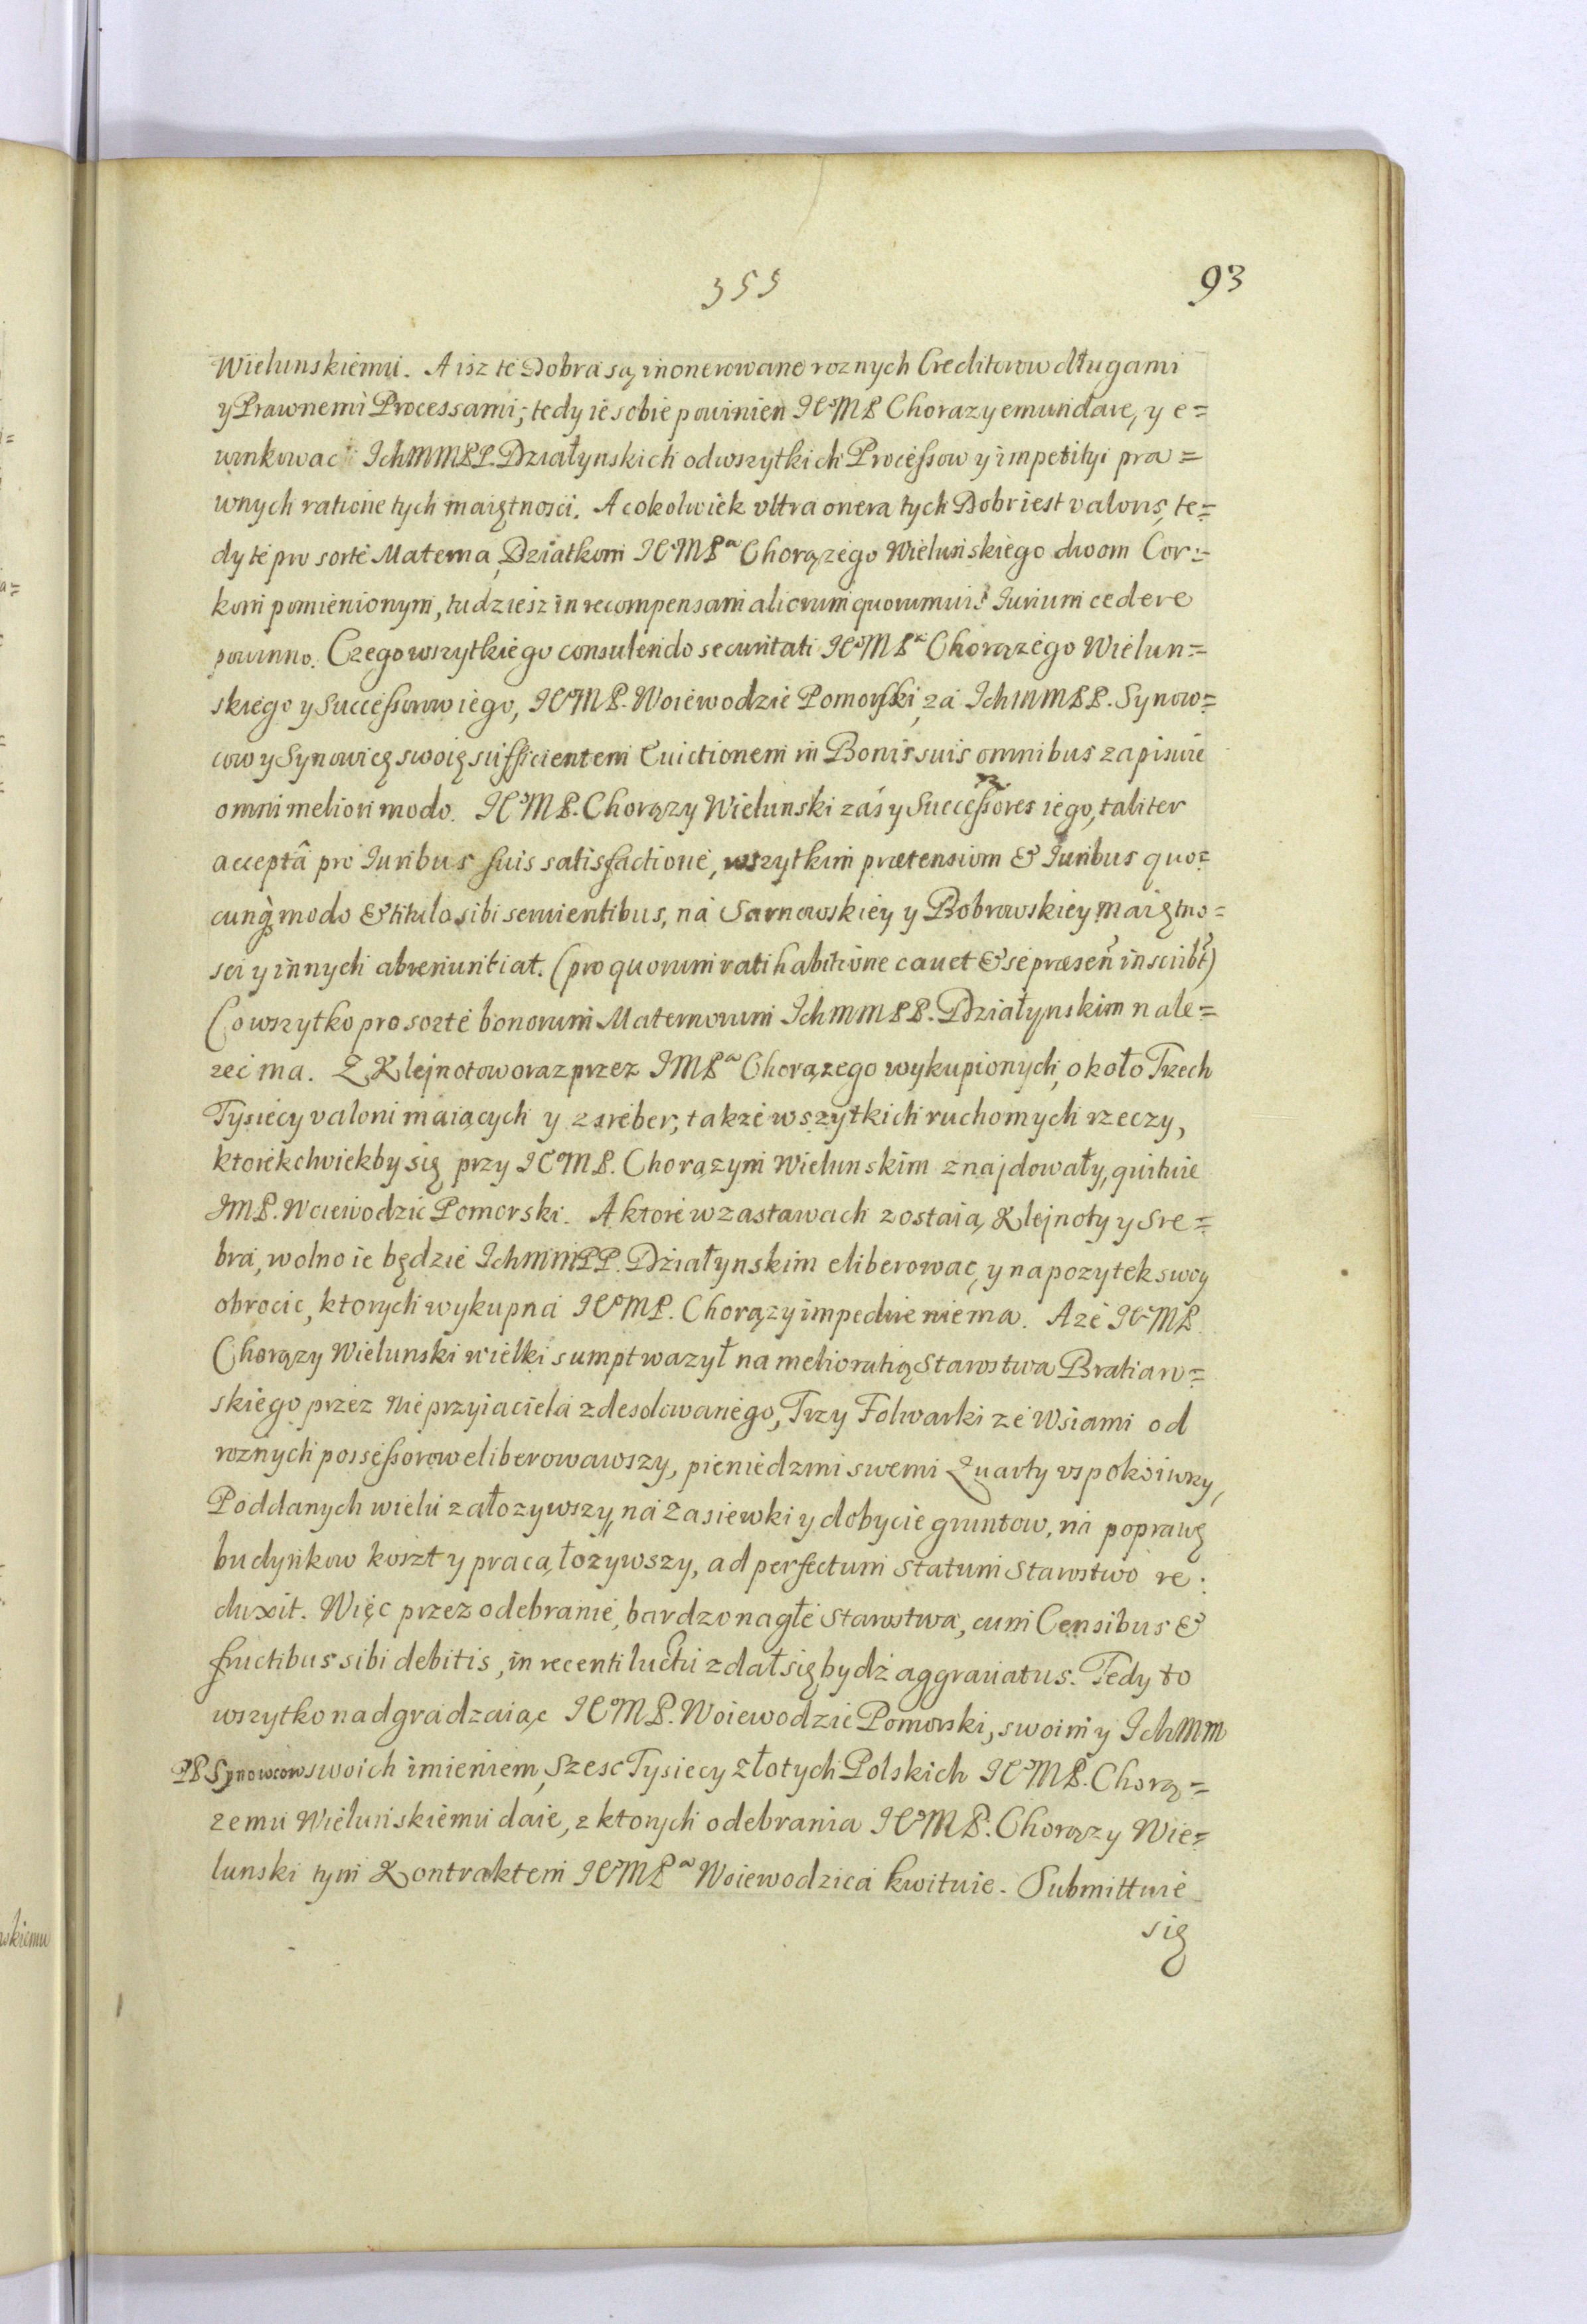 355
93
Wielunskiemu. A isz te Dobra są inonerowane roznych Creditorow długami
y Prawnemi Processami; tedy ie sobie powinien IeoMP Chorazy emundare, y e=
winkowac IchMMPP. Działynskich od wszytkich Processow y impetityi pra=
wnych ratione tych maiętnosci. A cokolwiek vltra onera tych Dobr iest valoris, te=
dy te pro sorte Materna, Dziatkom IeoMPa Chorązego Wielunskiego dwom Cor=
kom pomienionym, tudziesz in recompensam aliorum quorumuis Iurium cedere
powinno. Czego wszytkiego consulendo securitati IeoMPa Chorązego Wielun=
skiego y Successorow iego, IeoMP. Woiewodzic Pomorski, za IchMMPP. Synow=
cow y Synowicę swoię sufficientem Euictionem in Bonis suis omnibus zapisuie
omni meliori modo. IeoMP. Chorązy Wielunski zas y Successores iego, taliter
acceptâ pro Iuribus suis satisfactione, wszytkim prætensiom & Iuribus quo=
cunq modo & titulo sibi seruientibus, na Sarnowskiey y Bobrowskiey maiętno=
sci y innych abrenuntiat. (pro quorum ratihabitione cauet & se præsen inscribt)
Co wszytko pro sorte bonorum Maternorum IchMMPP. Działynskim nale=
zec ma. Z Klejnotow oraz przez IMPa Chorązego wykupionych, około Trzech
Tysiecy valoni maiących y z sreber, także wszytkich ruchomych rzeczy,
ktorekolwiekby się przy IeoMP. Chorązym Wielunskim znajdowały, quituie
IMP. Woiewodzic Pomorski. A ktore w zastawach zostaią, Klejnoty y Sre=
bra, wolno ie będzie IchMMPP. Działynskim eliberowac, y na pozytek swoy
obrocic, ktorych wykupna IeoMP. Chorązy impeduie nie ma. A ze IeoMP.
Chorązy Wielunski wielki sumpt wazył na melioratią Starostwa Bratian=
skiego przez nieprzyiaciela zdesolowanego, Trzy Folwarki ze Wsiami od
roznych possessorow eliberowawszy, pieniedzmi swemi Quarty vspokoiwszy,
Poddanych wielu założywszy, na zasiewki y dobycie gruntow, na poprawę
budynkow koszt y pracą łozywszy, ad perfectum statum Starostwo re.
duxit. Więc przez odebranie, bardzo nagłe Starostwa, cum Censibus &
fructibus sibi debitis, in recenti luctu zdał się bydź aggrauatus. Tedy to
wszytko nadgradzaiąc IeoMP. Woiewodzic Pomorski, swoim y IchMM
PP Synowcow swoich imieniem, Szesc Tysiecy Złotych Polskich IeoMP. Chorą=
zemu Wielunskiemu daie, z ktorych odebrania IeoMP. Chorązy Wie=
lunski tym Kontraktem IeoMPa Woiewodzica kwituie. Submittuie
się